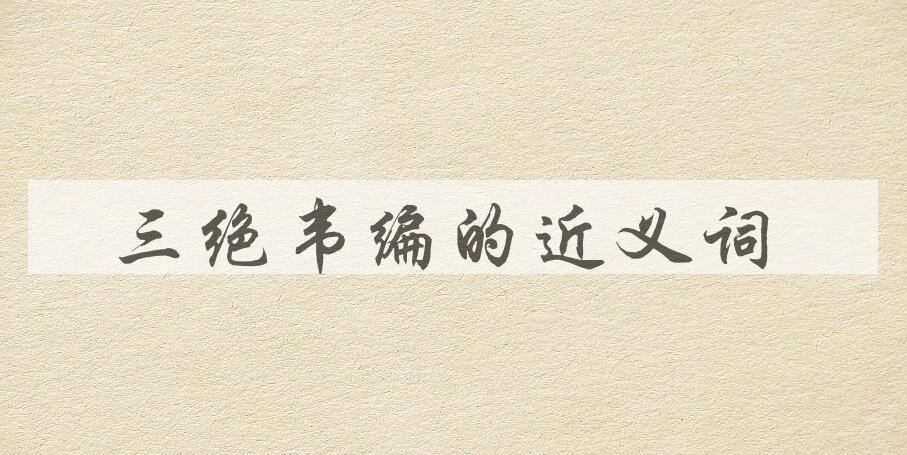 三绝韦编的近义词